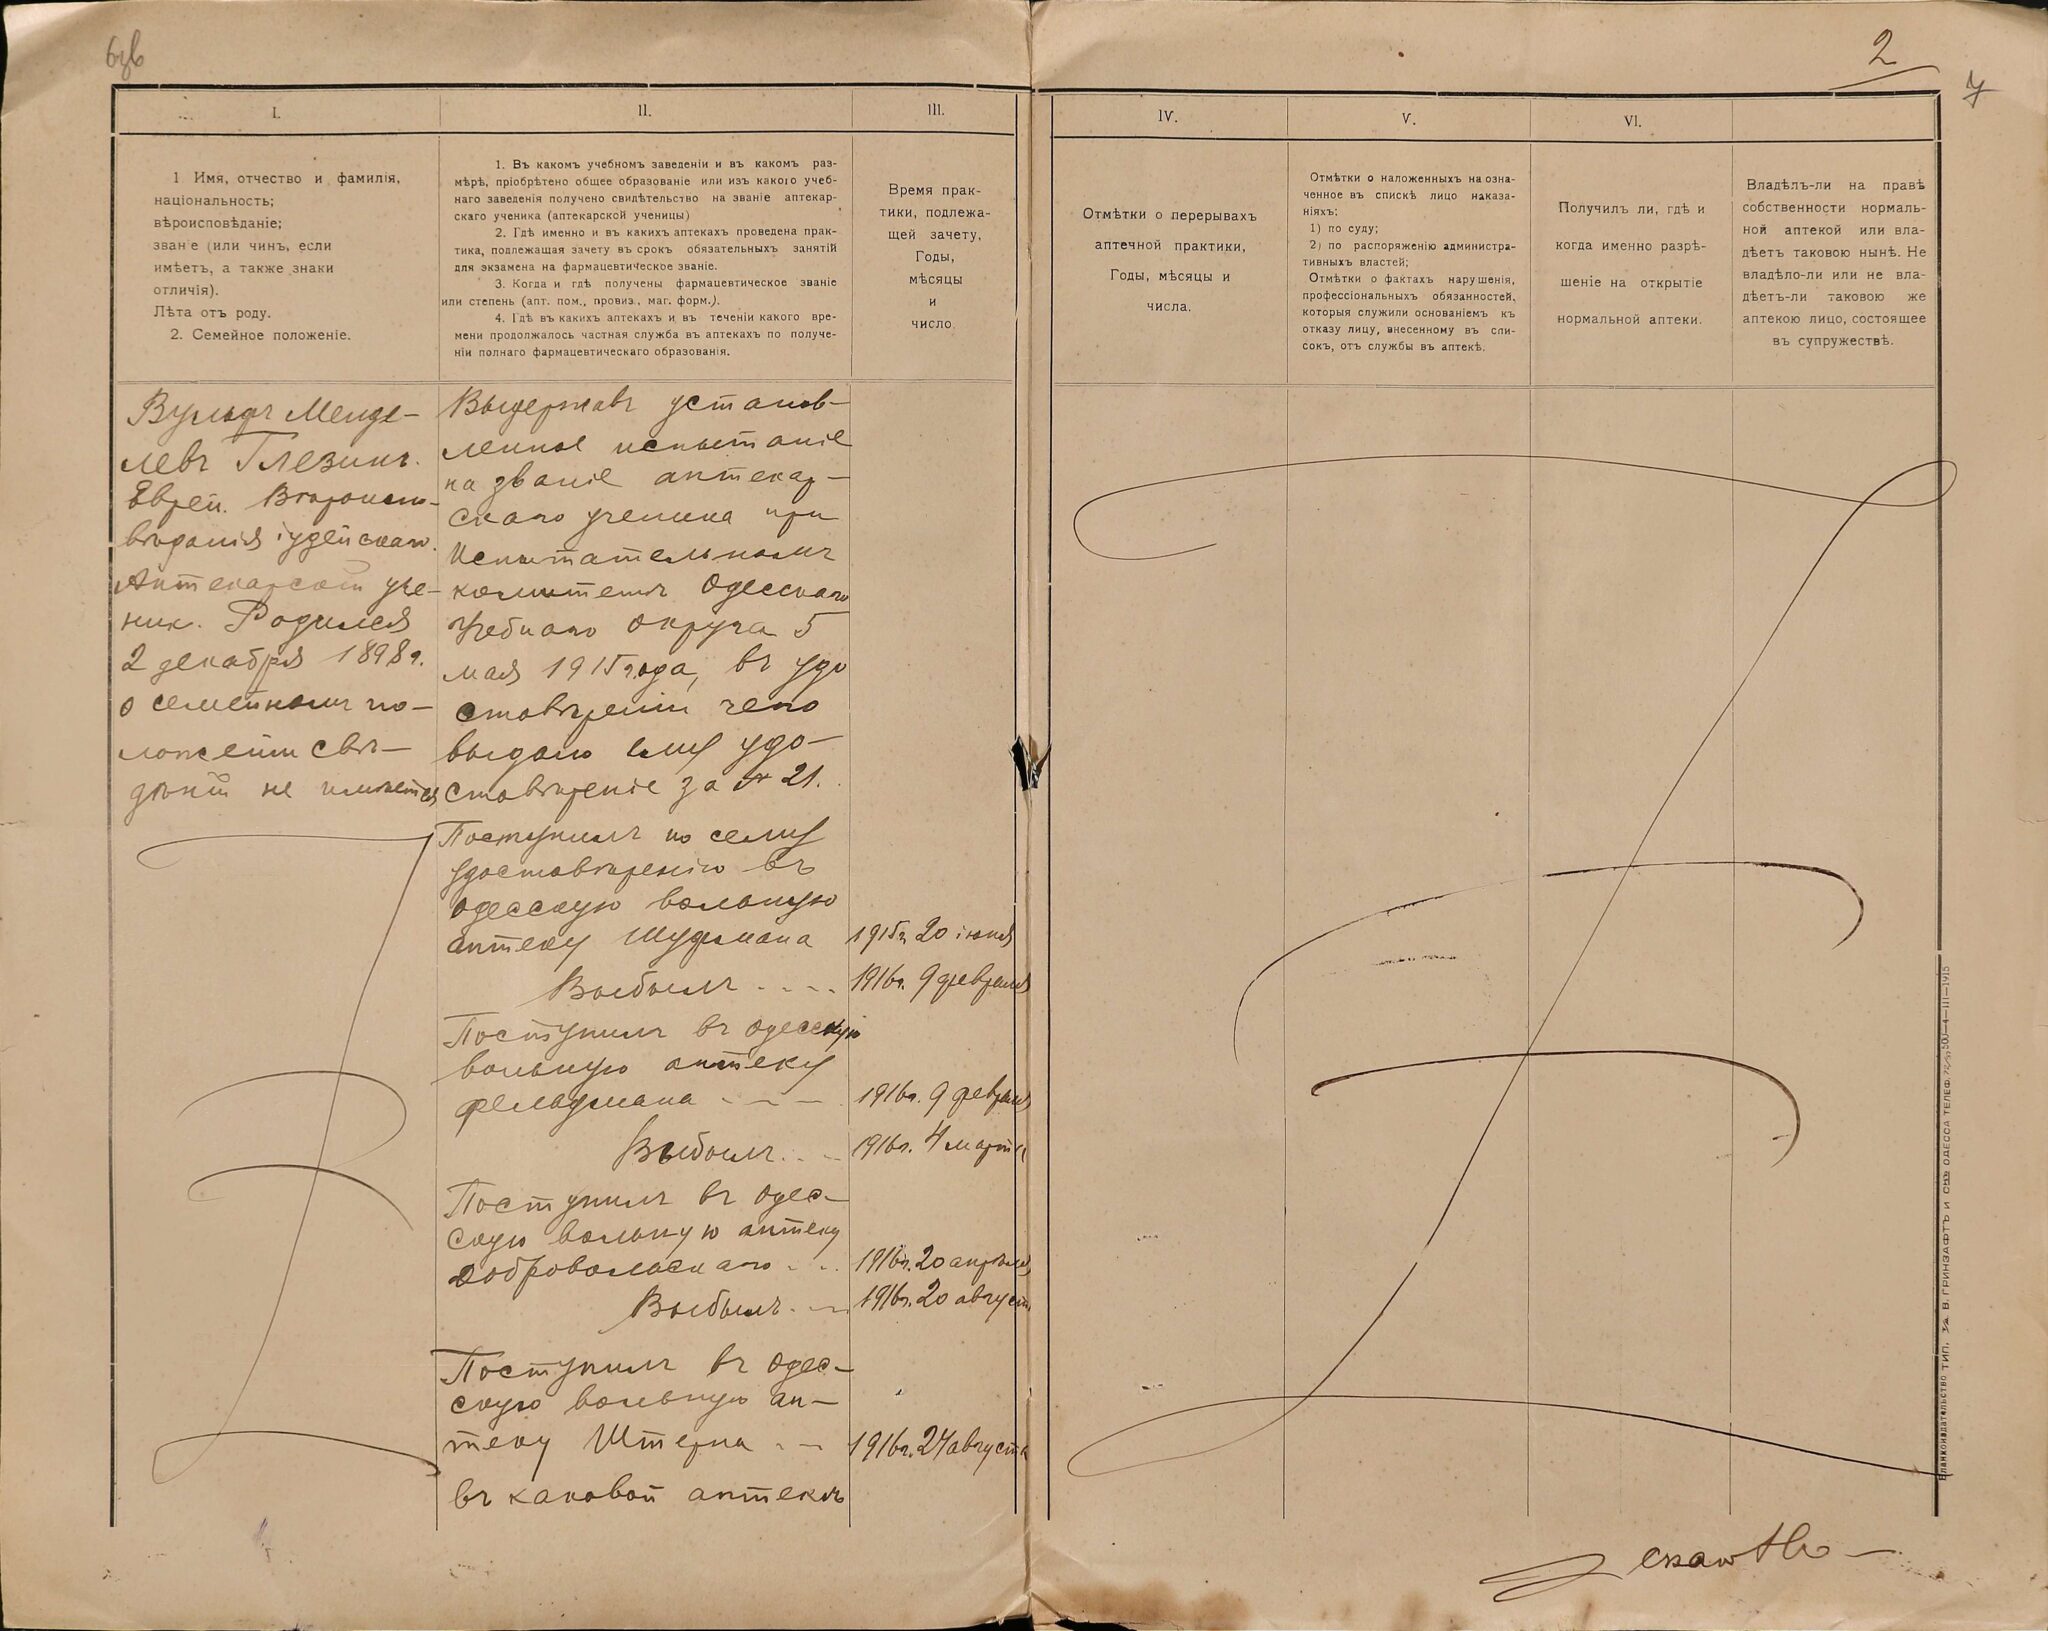 2
7
I.
II.
III.
IV.
V.
VI.
1 Имя, отчество и фамилія,
національность;
вѣроисповѣданіе;
зван'е (или чинъ, если
имѣетъ, а также знаки
отличія).
Лѣта отъ роду.
2. Семейное положеніе.
1. Въ какомъ учебномъ заведеніи и въ какомъ раз-
мѣрѣ, пріобрѣтено общее образованіе или изъ какого учеб-
наго заведенія получено свидѣтельство на званіе аптекар-
скаго ученика (аптекарской ученицы)
2. Гдѣ именно и въ какихъ аптекахъ проведена прак-
тика, подлежащая зачету въ срокъ обязательныхъ занятій
для экзамена на фармацевтическое званіе.
3. Когда и гдѣ получены фармацевтическое званіе
или степень (апт. пом., провиз., маг. форм.).
4. Гдѣ въ какихъ аптекахъ и въ теченіи какого вре-
мени продолжалось частная служба въ аптекахъ по получе-
ніи полнаго фармацевтическаго образованія.
Время прак-
тики, подлежа-
щей зачету,
Годы,
мѣсяцы
и
число.
Отмѣтки о перерывахъ
аптечной практики,
Годы, мѣсяцы и
числа.
Отмѣтки о наложенныхъ на озна-
ченное въ спискѣ лицо наказа-
ніяхъ:
1) по суду;
2) по распоряженію администра-
тивныхъ властей;
Отмѣтки о фактахъ нарушенія,
профессіональныхъ обязанностей,
которыя служили основаніемъ къ
отказу лицу, внесенному въ спи-
сокъ, отъ службы въ аптекѣ.
Получилъ ли, гдѣ и
когда именно разрѣ-
шеніе на открытіе
нормальной аптеки.
Владѣлъ-ли на правѣ
собственности нормаль-
ной аптекой или вла-
дѣетъ таковою нынѣ. Не
владѣло-ли или не вла-
дѣетъ-ли таковою же
аптекою лицо, состоящее
въ супружествѣ.
Вульфъ Менде-
левъ Глезинъ.
Еврей. Вѣроиспо-
вѣданія іудейскаго.
Аптекарскій уче-
ник. Родился
2 декабря 1898 г.
о семейномъ по-
ложеніи свѣ-
дѣній не имѣется
Выдержавъ установ-
ленное испытаніе
на званіе аптекар-
скаго ученика при
Испытательномъ
комитетѣ Одесскаго
Учебнаго Округа 5
мая 1915 года, въ удо
стовѣреніи чего
выдано ему удо-
стовѣреніе за № 21.
Поступилъ по сему
удостовѣренію въ
одесскую вольную
аптеку Шуфмана
1915 г. 20 іюня
Выбылъ - - - -
1916 г. 9 февраля
Поступилъ въ одесскую
вольную аптеку
Фельдмана - - -
1916 г. 9 февраля
Выбылъ. - -
1916 г. 4 марта
Поступилъ въ одес-
скую вольную аптеку
Добровольскаго - -
1916 г. 20 апрѣля
Выбылъ. -
1916 г. 20 август
Поступилъ въ одес-
скую вольную ап-
теку Штерна - -
1916 г. 27 августа
въ каковой аптекѣ
Бланкоиздательство тип. В. ГРИНЗАФТЪ И СНЪ ОДЕССА ТЕЛЕФ. 500—4—III—1915